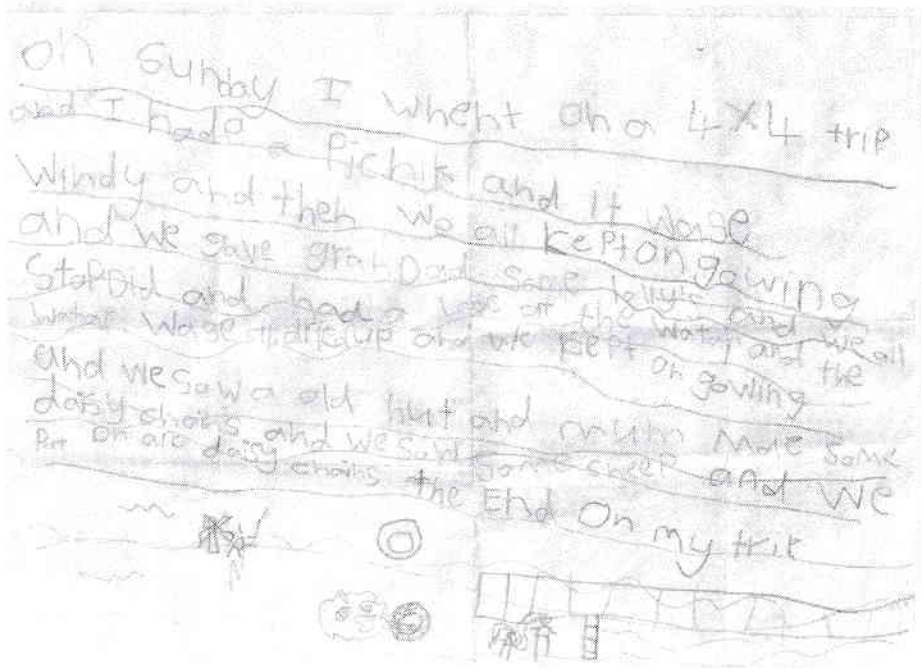 on Sunday I whent on a 4X4 trip
and I had a Picnik and it wase
Windy and then we all kept on gowing
and we gave grandDad some Jellys and we all
Stoppid and had a look at the watar and the
watar wase dried up and we kept on gowing
and we saw a old hut and mum made some
daisy chains and we saw some sheep and we
Put on are daisy chains the End On my trip